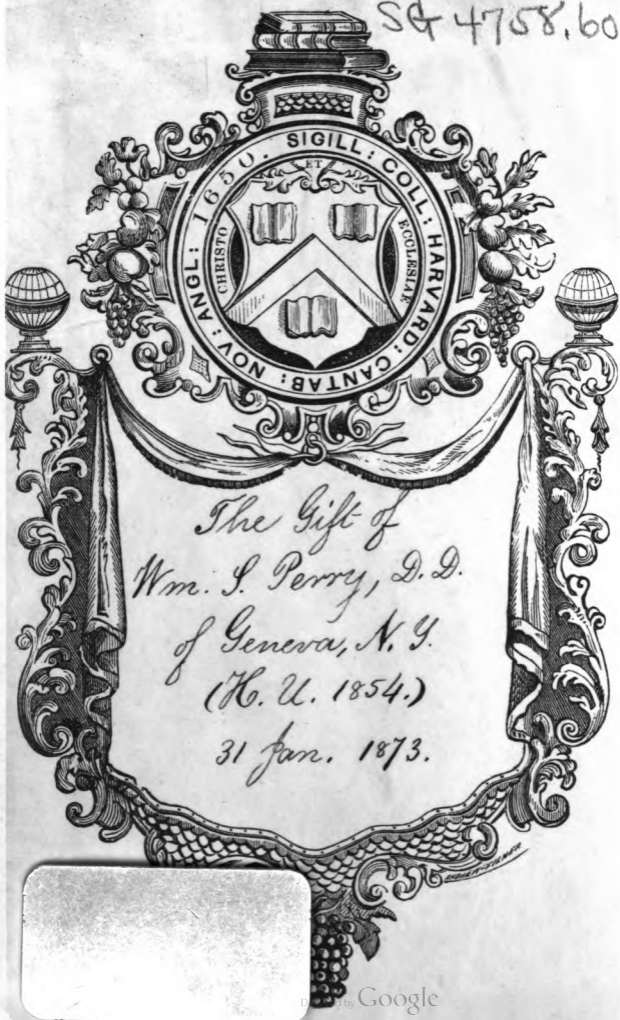 SG 4758.60
1650. SIGILL: COLL: HARVARD: CANTAB: NOV: ANGL:
CHRISTO ET ECCLESIAE
The Gift of
Wm. S. Perry, D.D.
of Geneva, N.Y.
(H. U. 1854.)
31 Jan. 1873.
Google